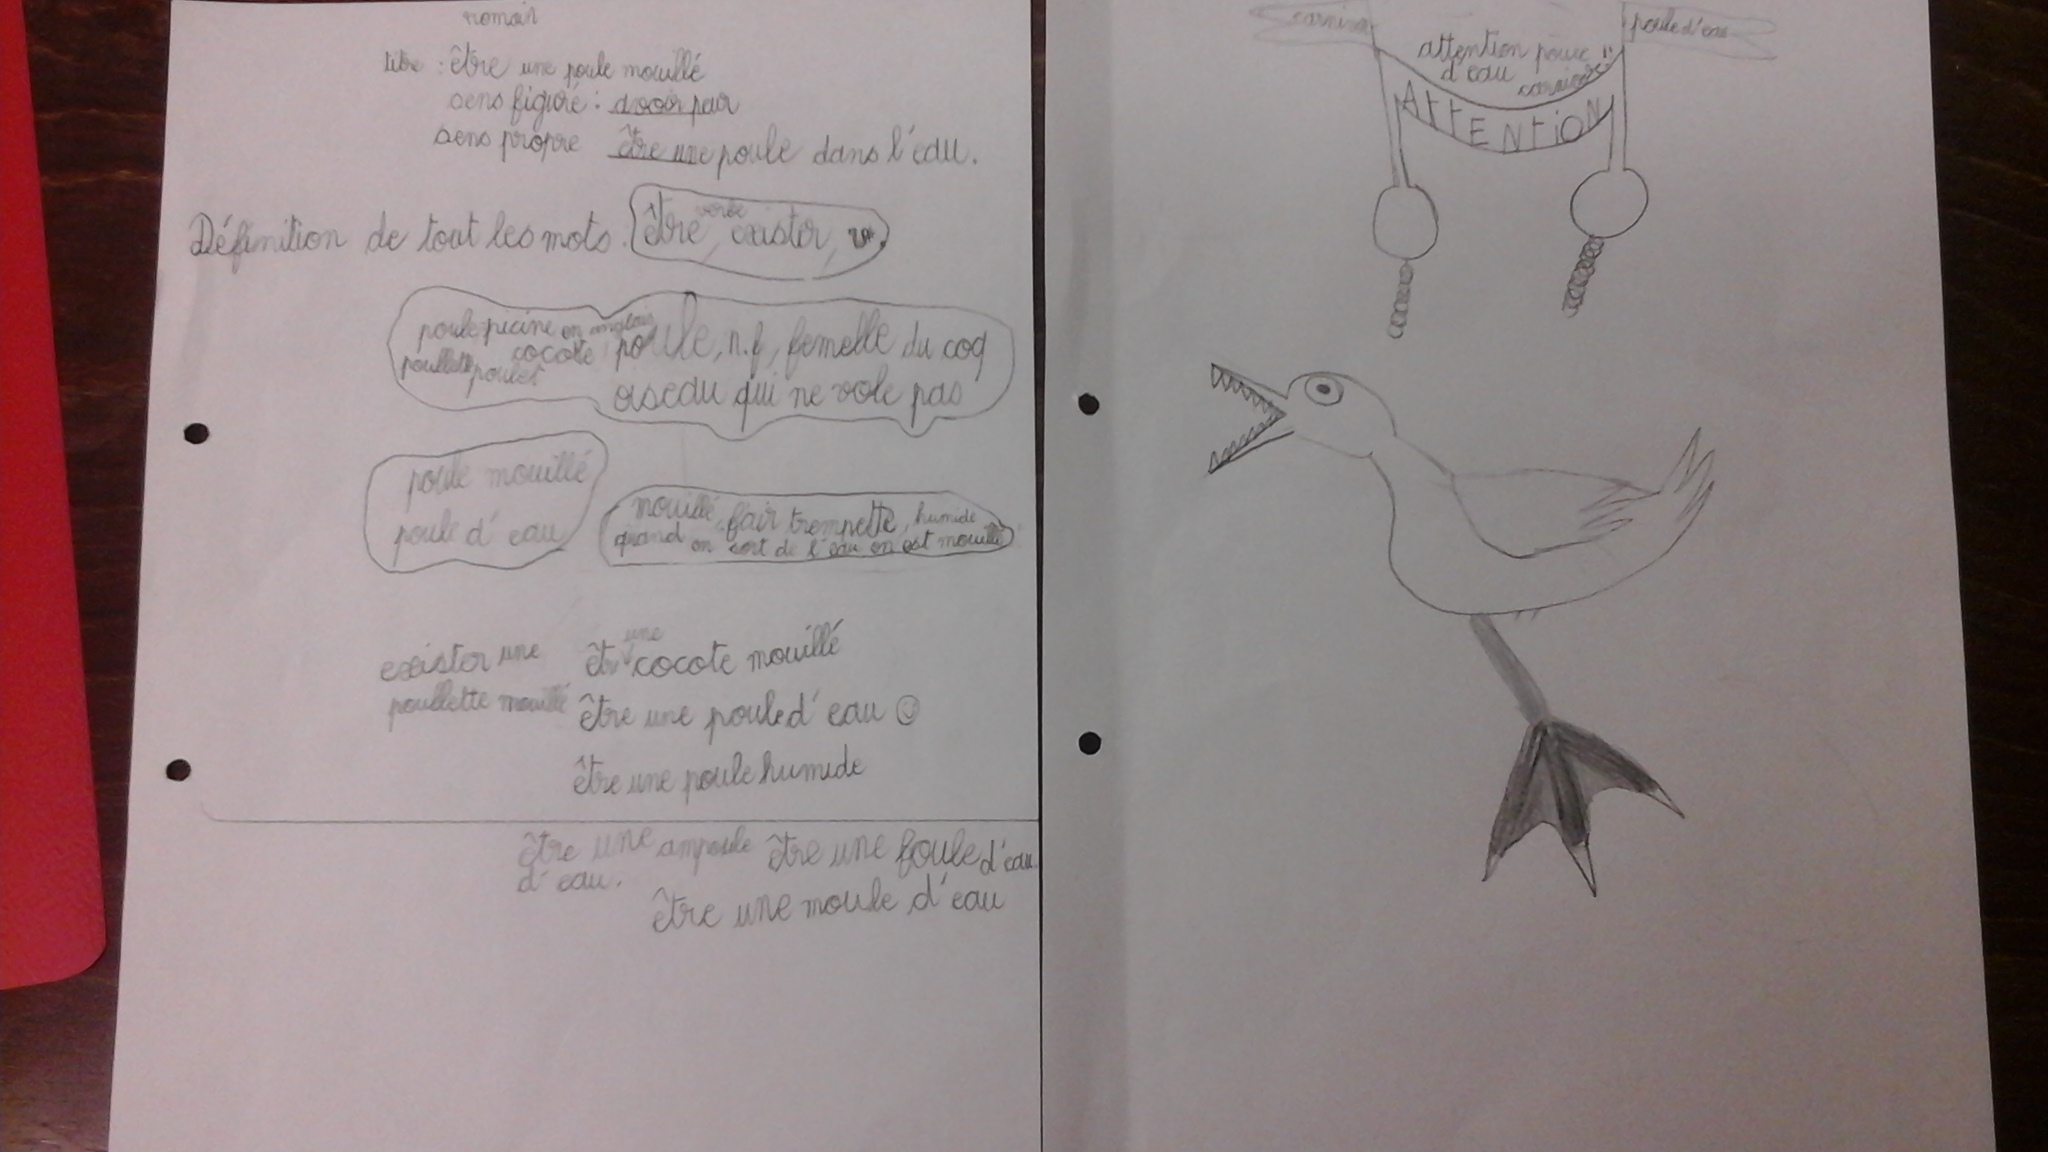 romain
titre : être une poule mouillé
sens figuré : avoir peur
sens propre être une poule dans l'eau.
Définition de tout les mots.
verbe
être, exister,
poule, picine en anglais
cocote
poullette poulet
poule, n.f, femelle du coq
oiseau qui ne vole pas
poule mouillé
poule d'eau
mouillé, fair trempette, humide
quand on sort de l'eau on est mouillé
exister une
poullette mouillé
une
êtr cocote mouillé
être une poule d'eau
être une poule humide
être une ampoule
d'eau.
être une foule d'eau
être une moule d'eau
poule d'eau
attention poule
d'eau
carnivore !!
ATTENTION